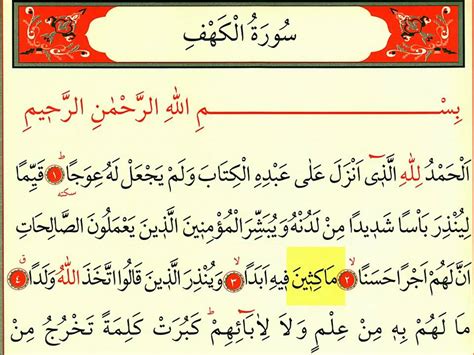 سُورَةُ الْكَهْفِ
بِسْمِ اللهِ الرَّحْمٰنِ الرَّحٖيمِ
اَلْحَمْدُ لِلّٰهِ الَّذٖٓى اَنْزَلَ عَلٰى عَبْدِهِ الْكِتَابَ وَلَمْ يَجْعَلْ لَهُ عِوَجًا ﴿١﴾ قَيِّمًا
سكته
لِيُنْذِرَ بَاْسًا شَدٖيدًا مِنْ لَدُنْهُ وَيُبَشِّرَ الْمُؤْمِنٖينَ الَّذٖينَ يَعْمَلُونَ الصَّالِحَاتِ
اَنَّ لَهُمْ اَجْرًا حَسَنًا ﴿٢﴾ مَاكِثٖينَ فٖيهِ اَبَدًا ﴿٣﴾ وَيُنْذِرَ الَّذٖينَ قَالُوا اتَّخَذَ اللهُ وَلَدًا ﴿٤﴾
مَا لَهُمْ بِهٖ مِنْ عِلْمٍ وَلَا لِاٰبَٓائِهِمْ كَبُرَتْ كَلِمَةً تَخْرُجُ مِنْ